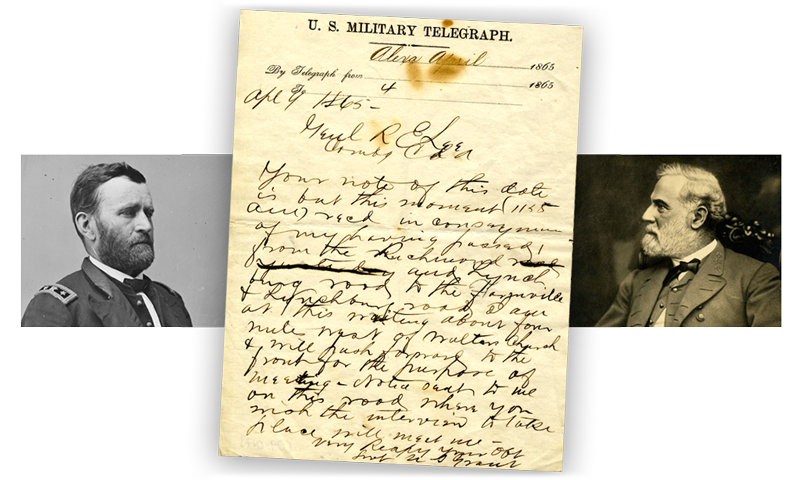 U. S. MILITARY TELEGRAPH.
Alexa April 1865
By Telegraph from 1865
To 4
Apl 9 1865-
Genl R E Lee
Comdg C S A
Your note of this date
is but this moment (11:50
am) recd in consequence
of my having passed
from the Richmond road
and Lynch
burg road to the Farmville
& Lynchburg road I am
at this writing about four
mile west of Walters Church
& will push forward to the
front for the purpose of
meeting - Notice sent to me
on this road where you
wish the interview to take
place will meet me -
Very Respy Your Obt
Svt U S Grant